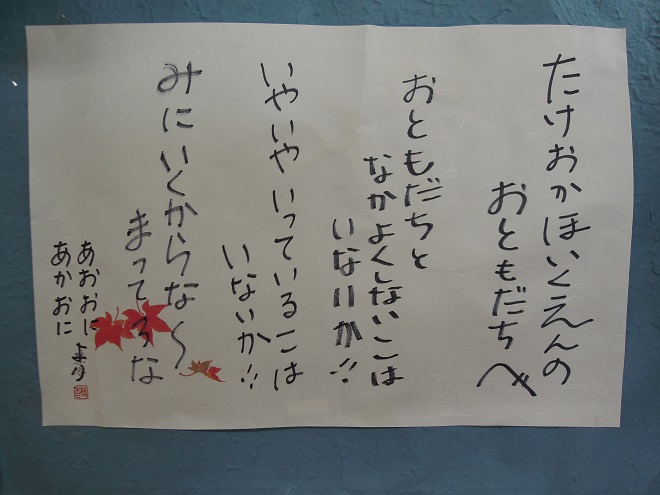 たけおかほいくえんの
おともだちへ
おともだちと
なかよくしないこは
いないか!!
いやいやいっているこは
いないか!!
みにいくからな〜
まってろな
あおおに
あかおに
より